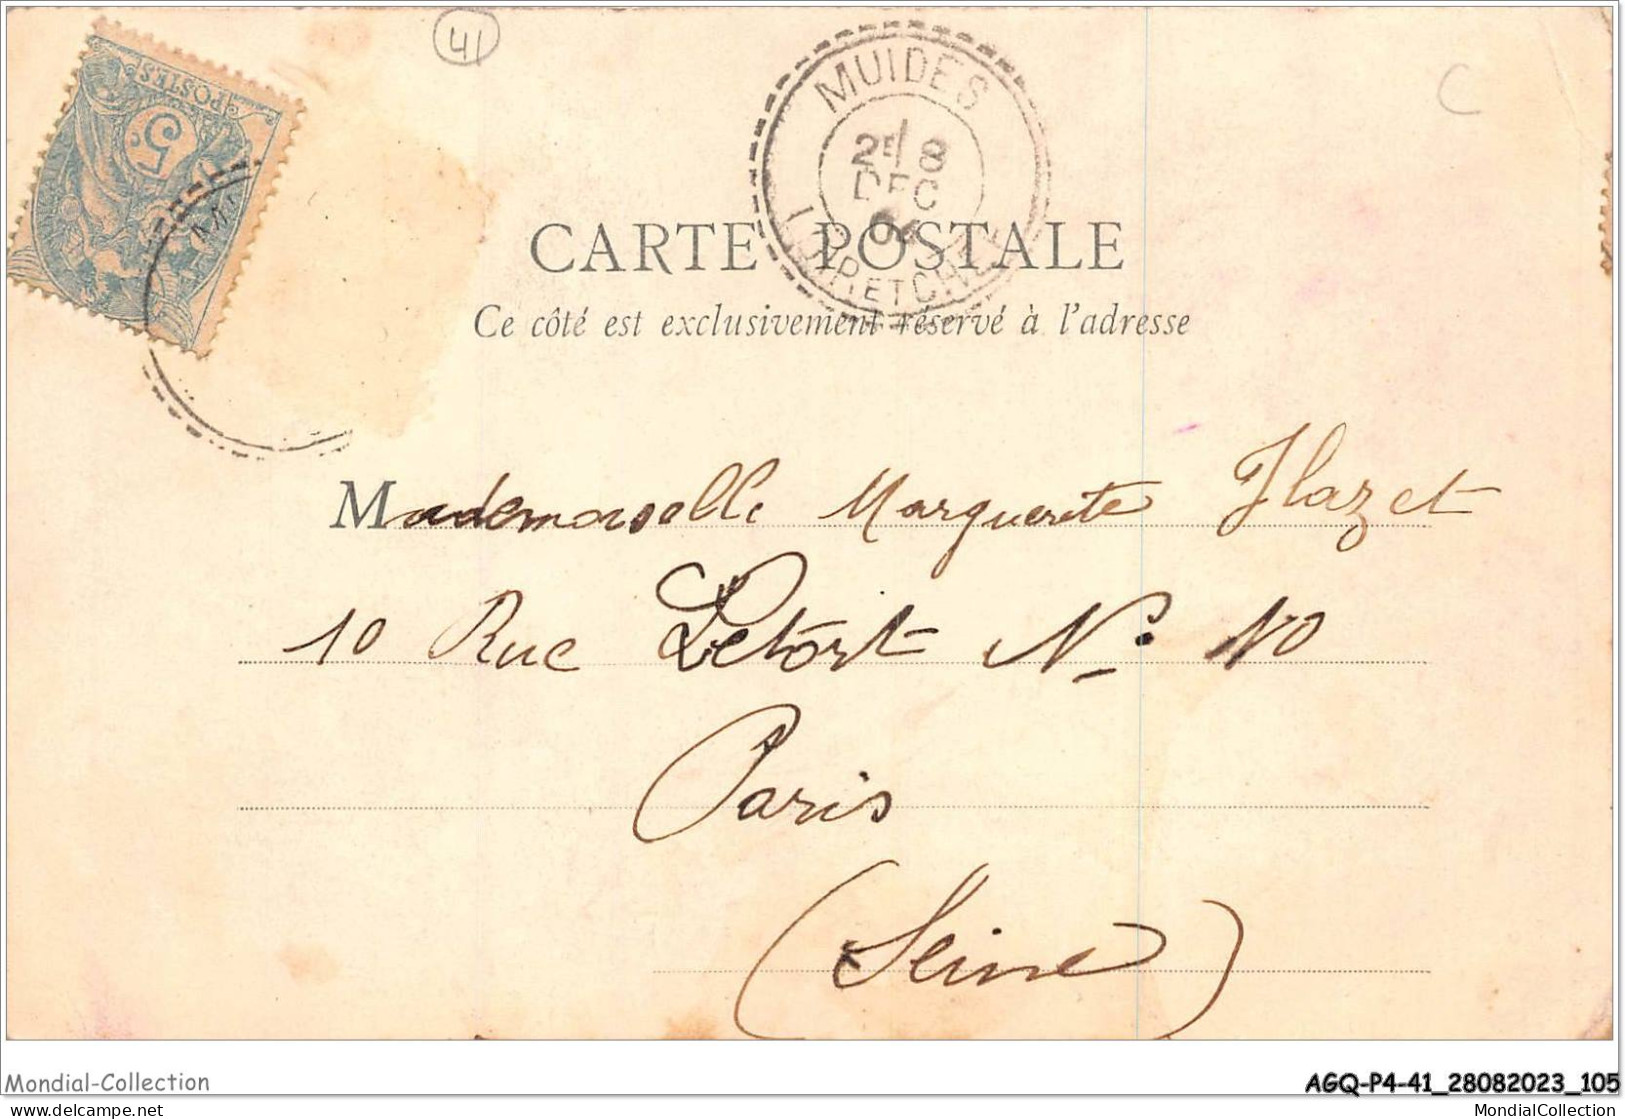 41
C
5c.
POSTES
MUIDES
2E/ 8
DEC
LOIR ET CHER
CARTE POSTALE
Ce côté est exclusivement réservé à l'adresse
Mademoiselle Marguerite Hazet
10 Rue Letort No 10
Paris
(Seine)
Mondial-Collection
AGQ-P4-41_28082023_105
www.delcampe.net
MondialCollection